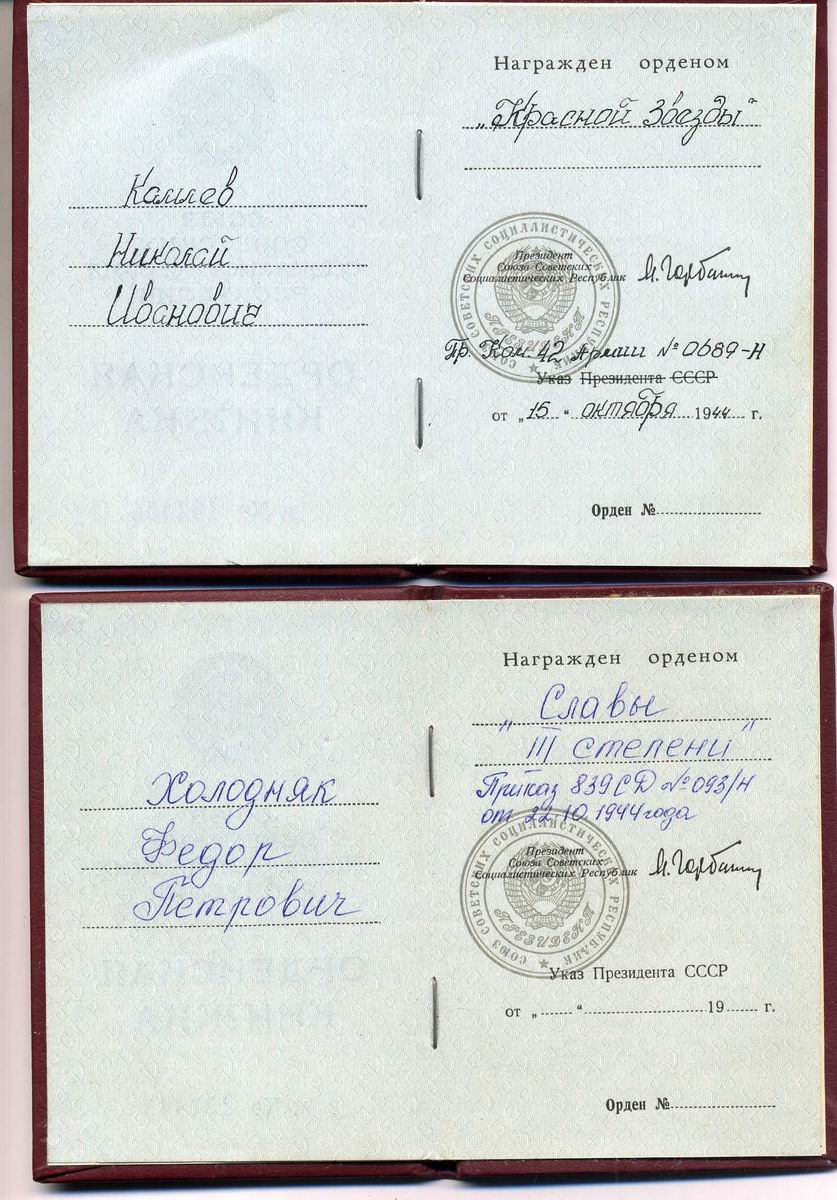 Каплев
Николай
Иванович
Награжден орденом
„Красной Звезды"
СОЮЗ СОВЕТСКИХ СОЦИАЛИСТИЧЕСКИХ РЕСПУБЛИК
ПРЕЗИДЕНТ
Президент
Союза Советских
Социалистических Республик
М. Горбачев
Пр. Ком. 42 Армии № 0689-Н
Указ Президента СССР
от „15" октября 1944 г.
Орден №
Холодняк
Федор
Петрович
Награжден орденом
„Славы
III степени"
Приказ 839 СД № 093/Н
от 22.10.1944 года
СОЮЗ СОВЕТСКИХ СОЦИАЛИСТИЧЕСКИХ РЕСПУБЛИК
ПРЕЗИДЕНТ
Президент
Союза Советских
Социалистических Республик
М. Горбачев
Указ Президента СССР
от „ " 19 г.
Орден №